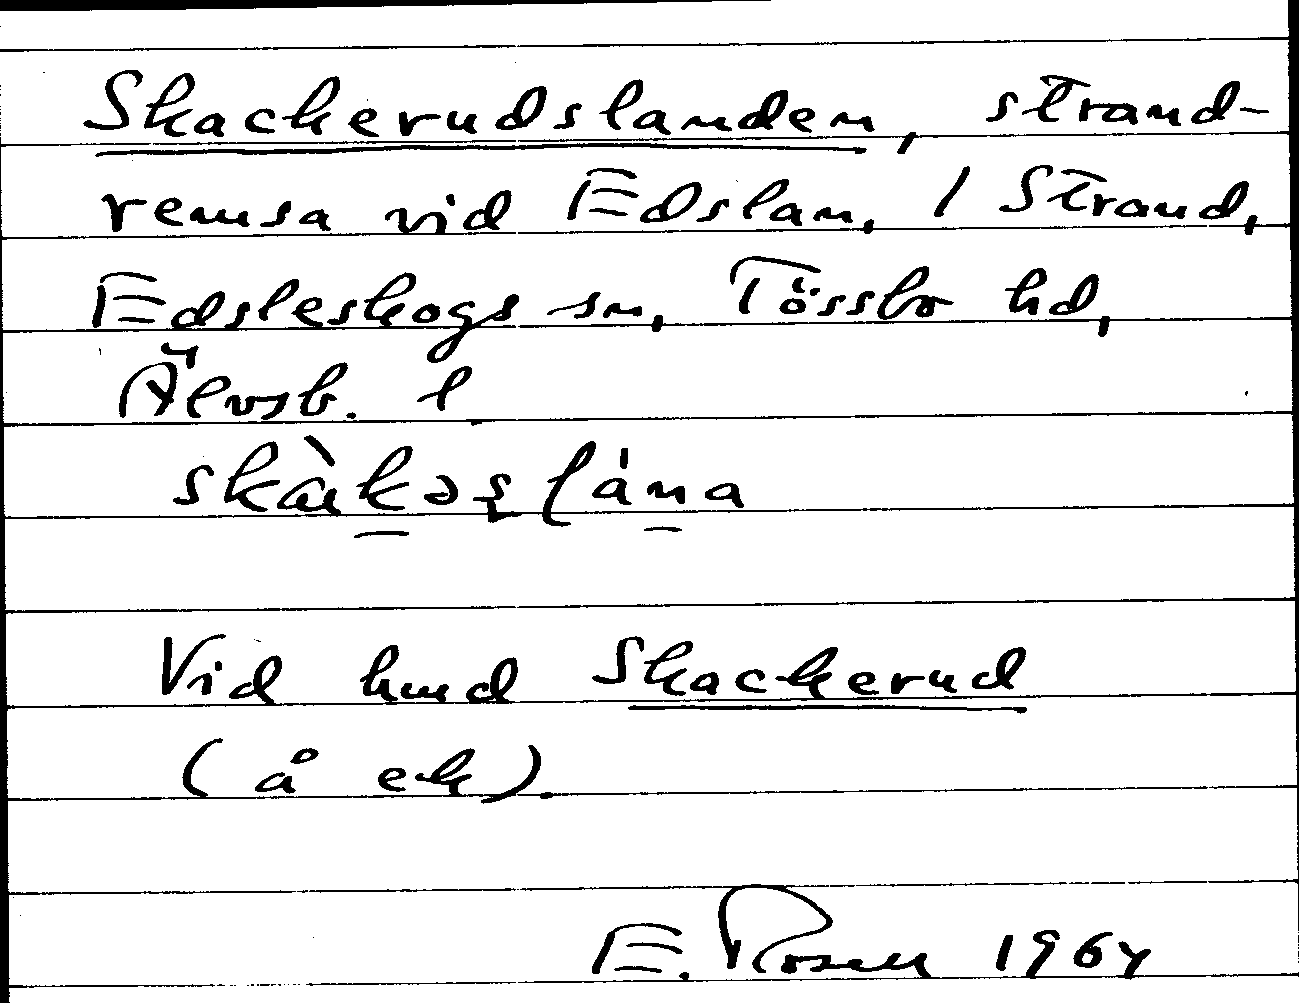 Skackerudslanden, strand-
remsa vid Edslan, 1 Strand,
Edsleskogs sn, Tössbo hd,
Älvsb. l
Vid hmd Skackerud
(å ek).
E. Rosen 1964